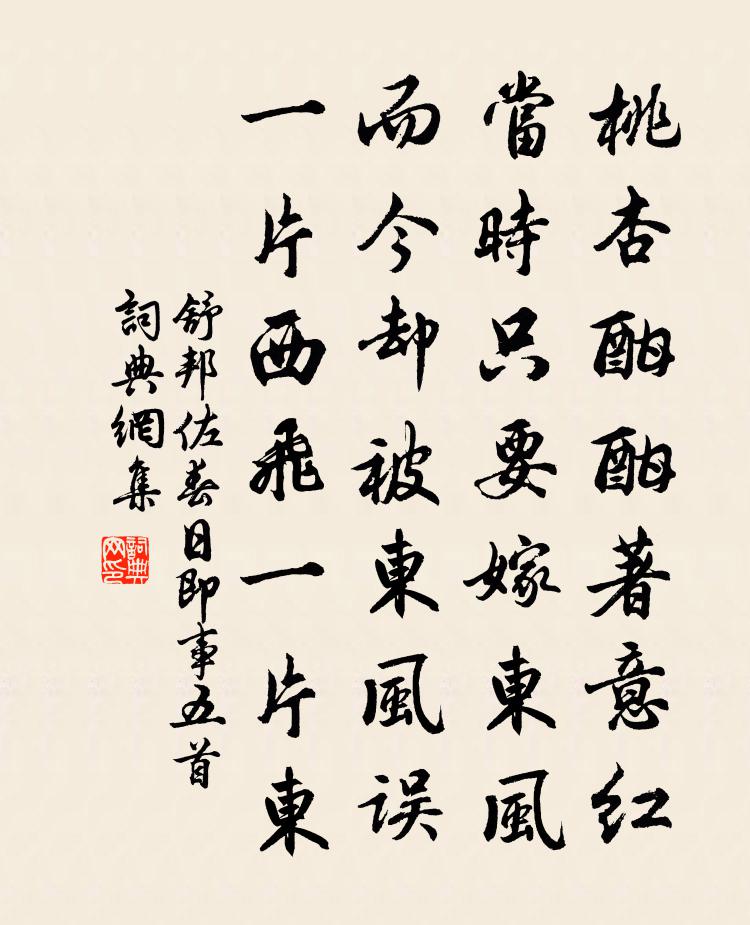 桃杏酣酣著意紅
當時只要嫁東風
而今却被東風誤
一片西飛一片東
舒邦佐春日即事五首
詞典網集
詞典网印